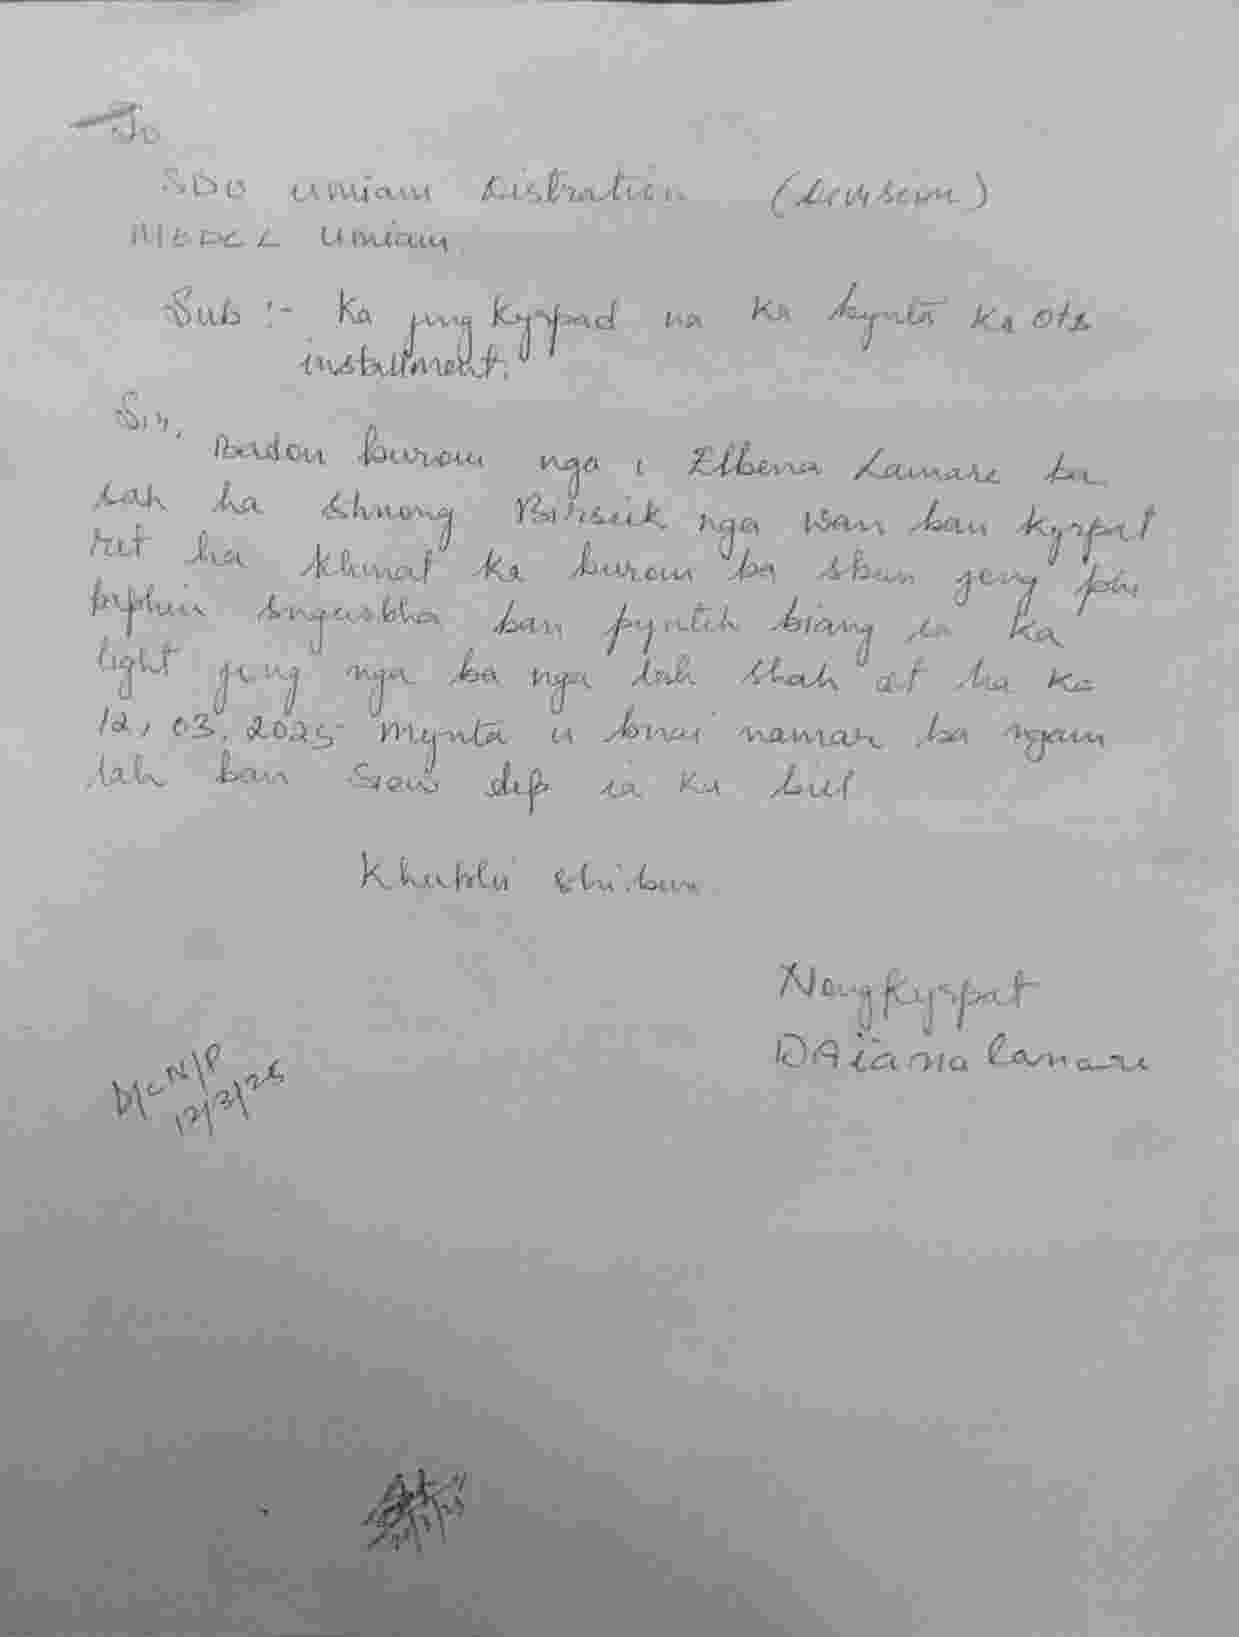 To
SDO umiam Distration (Division)
MEPCL umiam
Sub :- Ka jing Kyrpad na ka bynta ka ots
installment.
Sir,
Badon burom nga i Elbena Lamare ba
sah ha shnong Birsuk nga wan ban kyrpat
ret ha khmat ka burom ba shun jong phi
baphin sngewbha ban pyntih biang ia ka
light jong nga ba nga lah shah ot ha ka
12, 03, 2025 mynta u bnai namar ba ngam
lah ban siew dep ia ka bil
Khublei shi.bun
Nongkyrpat
DAiana lamare
D/c N/P
12/3/25